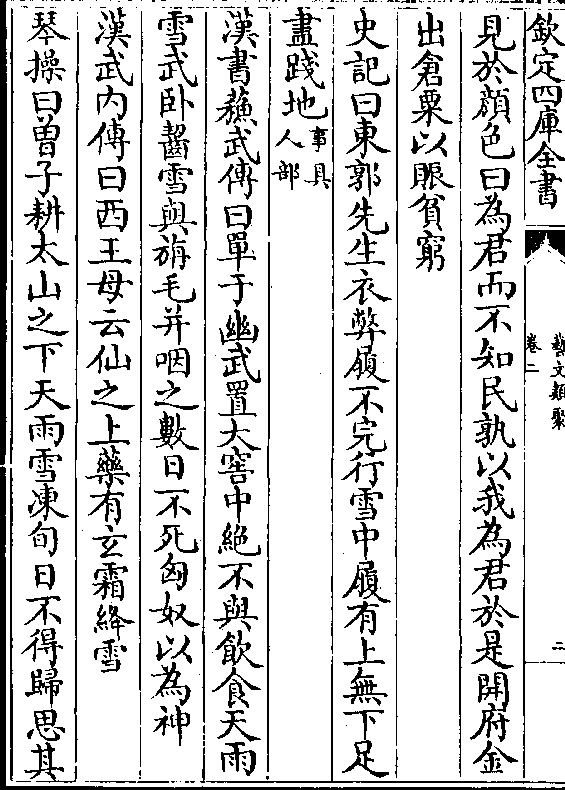 欽定四庫全書
藝文類聚
卷二
二
見於顔色曰為君而不知民孰以我為君於是開府金
出倉粟以賑貧窮
史記曰東郭先生衣弊履不完行雪中履有上無下足
盡踐地事具人部
漢書蘓武傳曰單于幽武置大窖中絶不與飲食天雨
雪武卧齧雪與旃毛并咽之數日不死匈奴以為神
漢武内傳曰西王母云仙之上藥有玄霜絳雪
琴操曰曽子耕太山之下天雨雪凍旬日不得歸思其